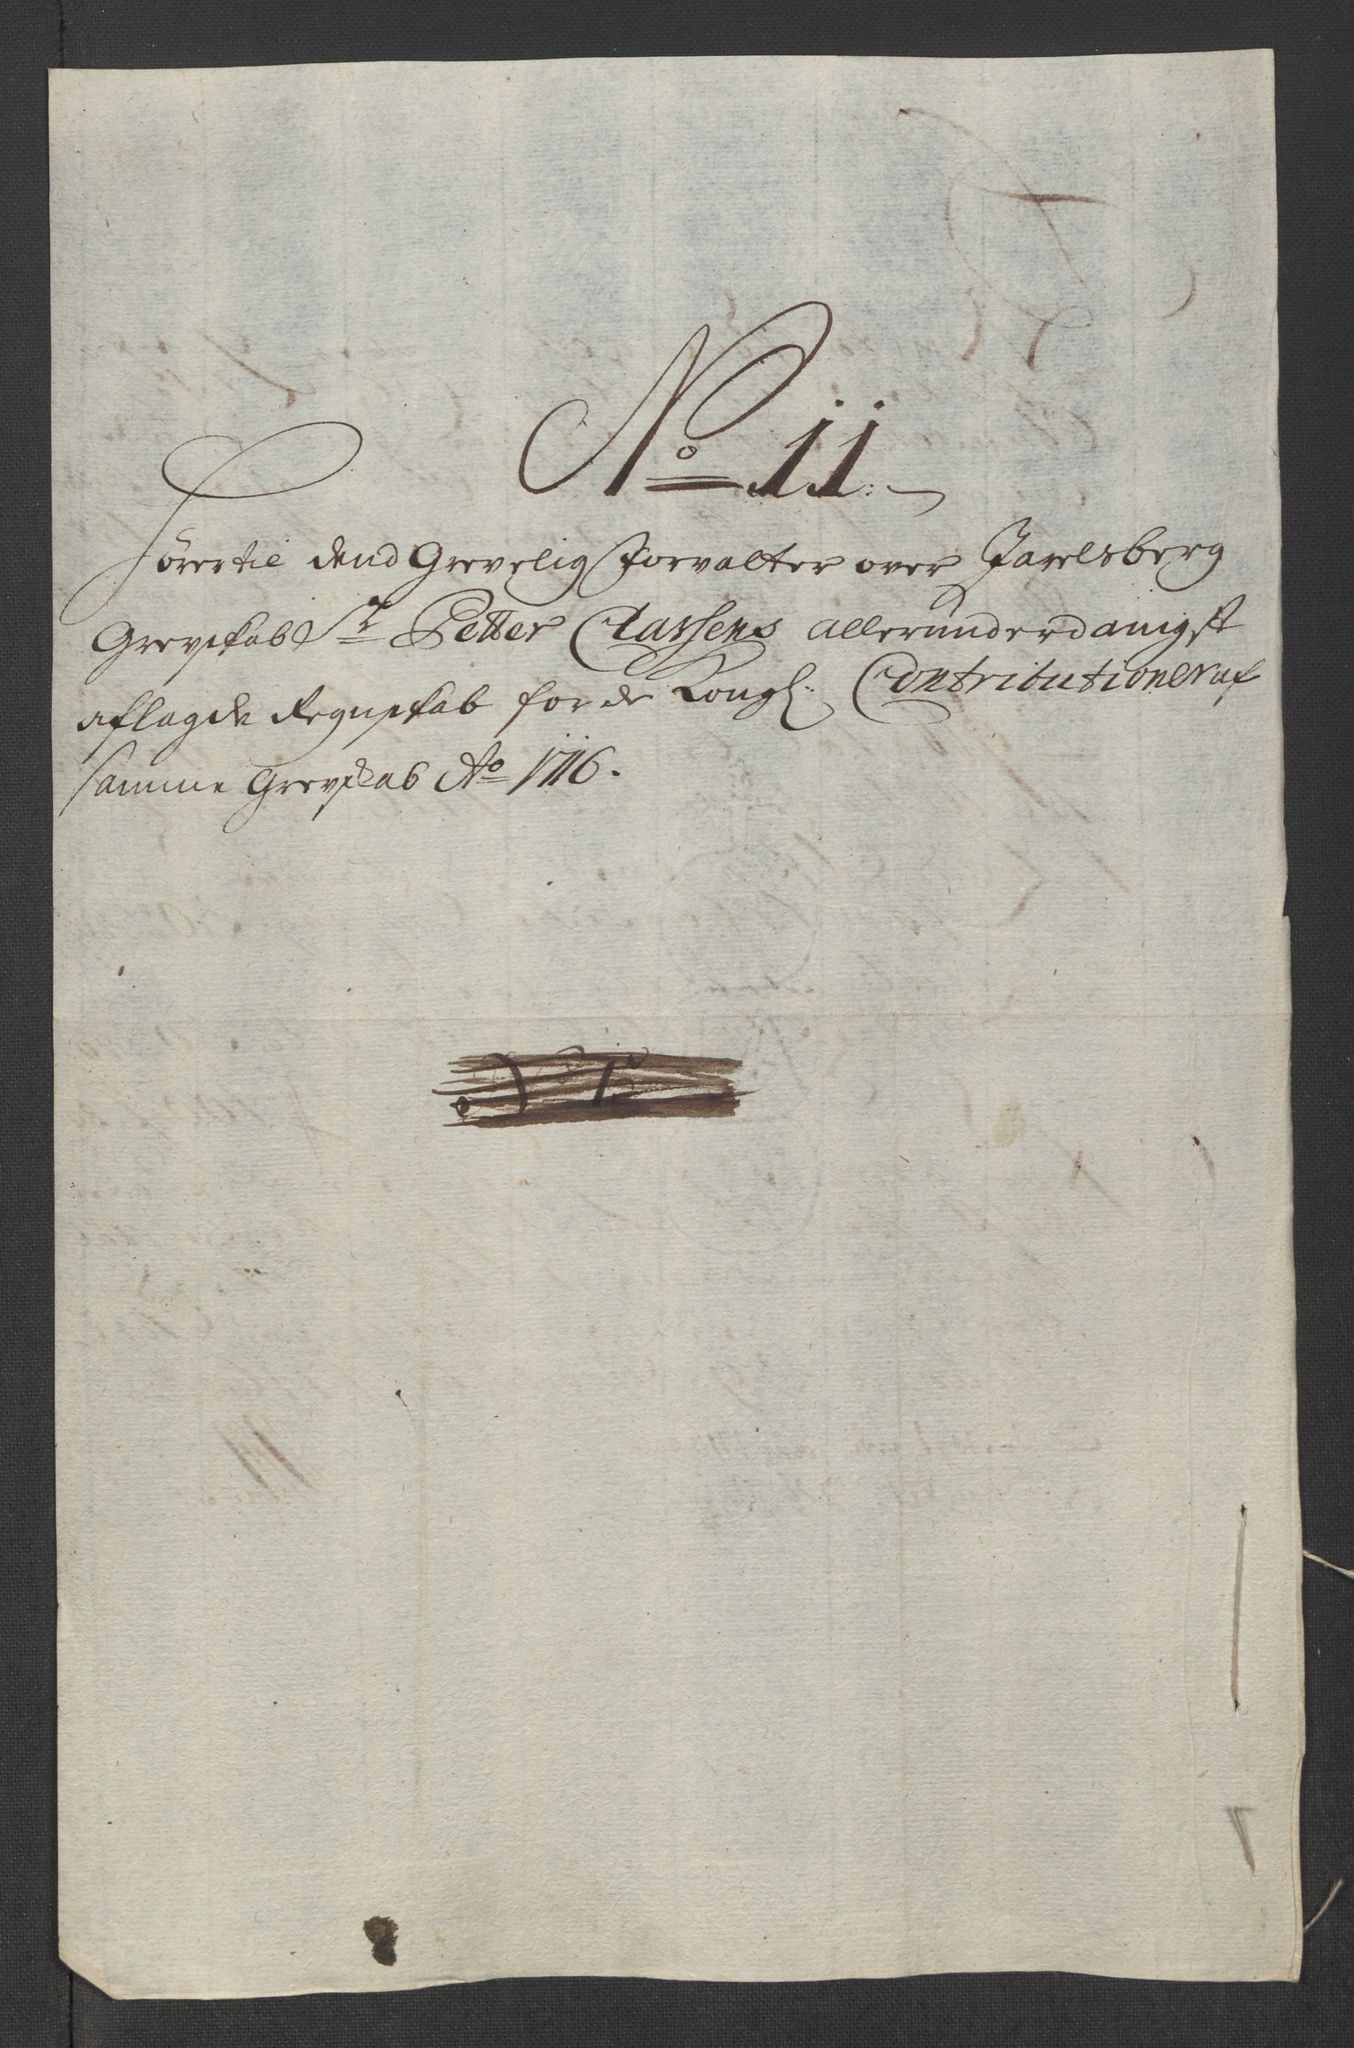 No 11.
Hörer til dend Grevelig Forvalter over Jarelsberg
Grevskab Sr Petter Clausens allerunderdanigst
aflagde Regnskab for de Kongl: Contributioner af
samme Grevskab Ao 1716.